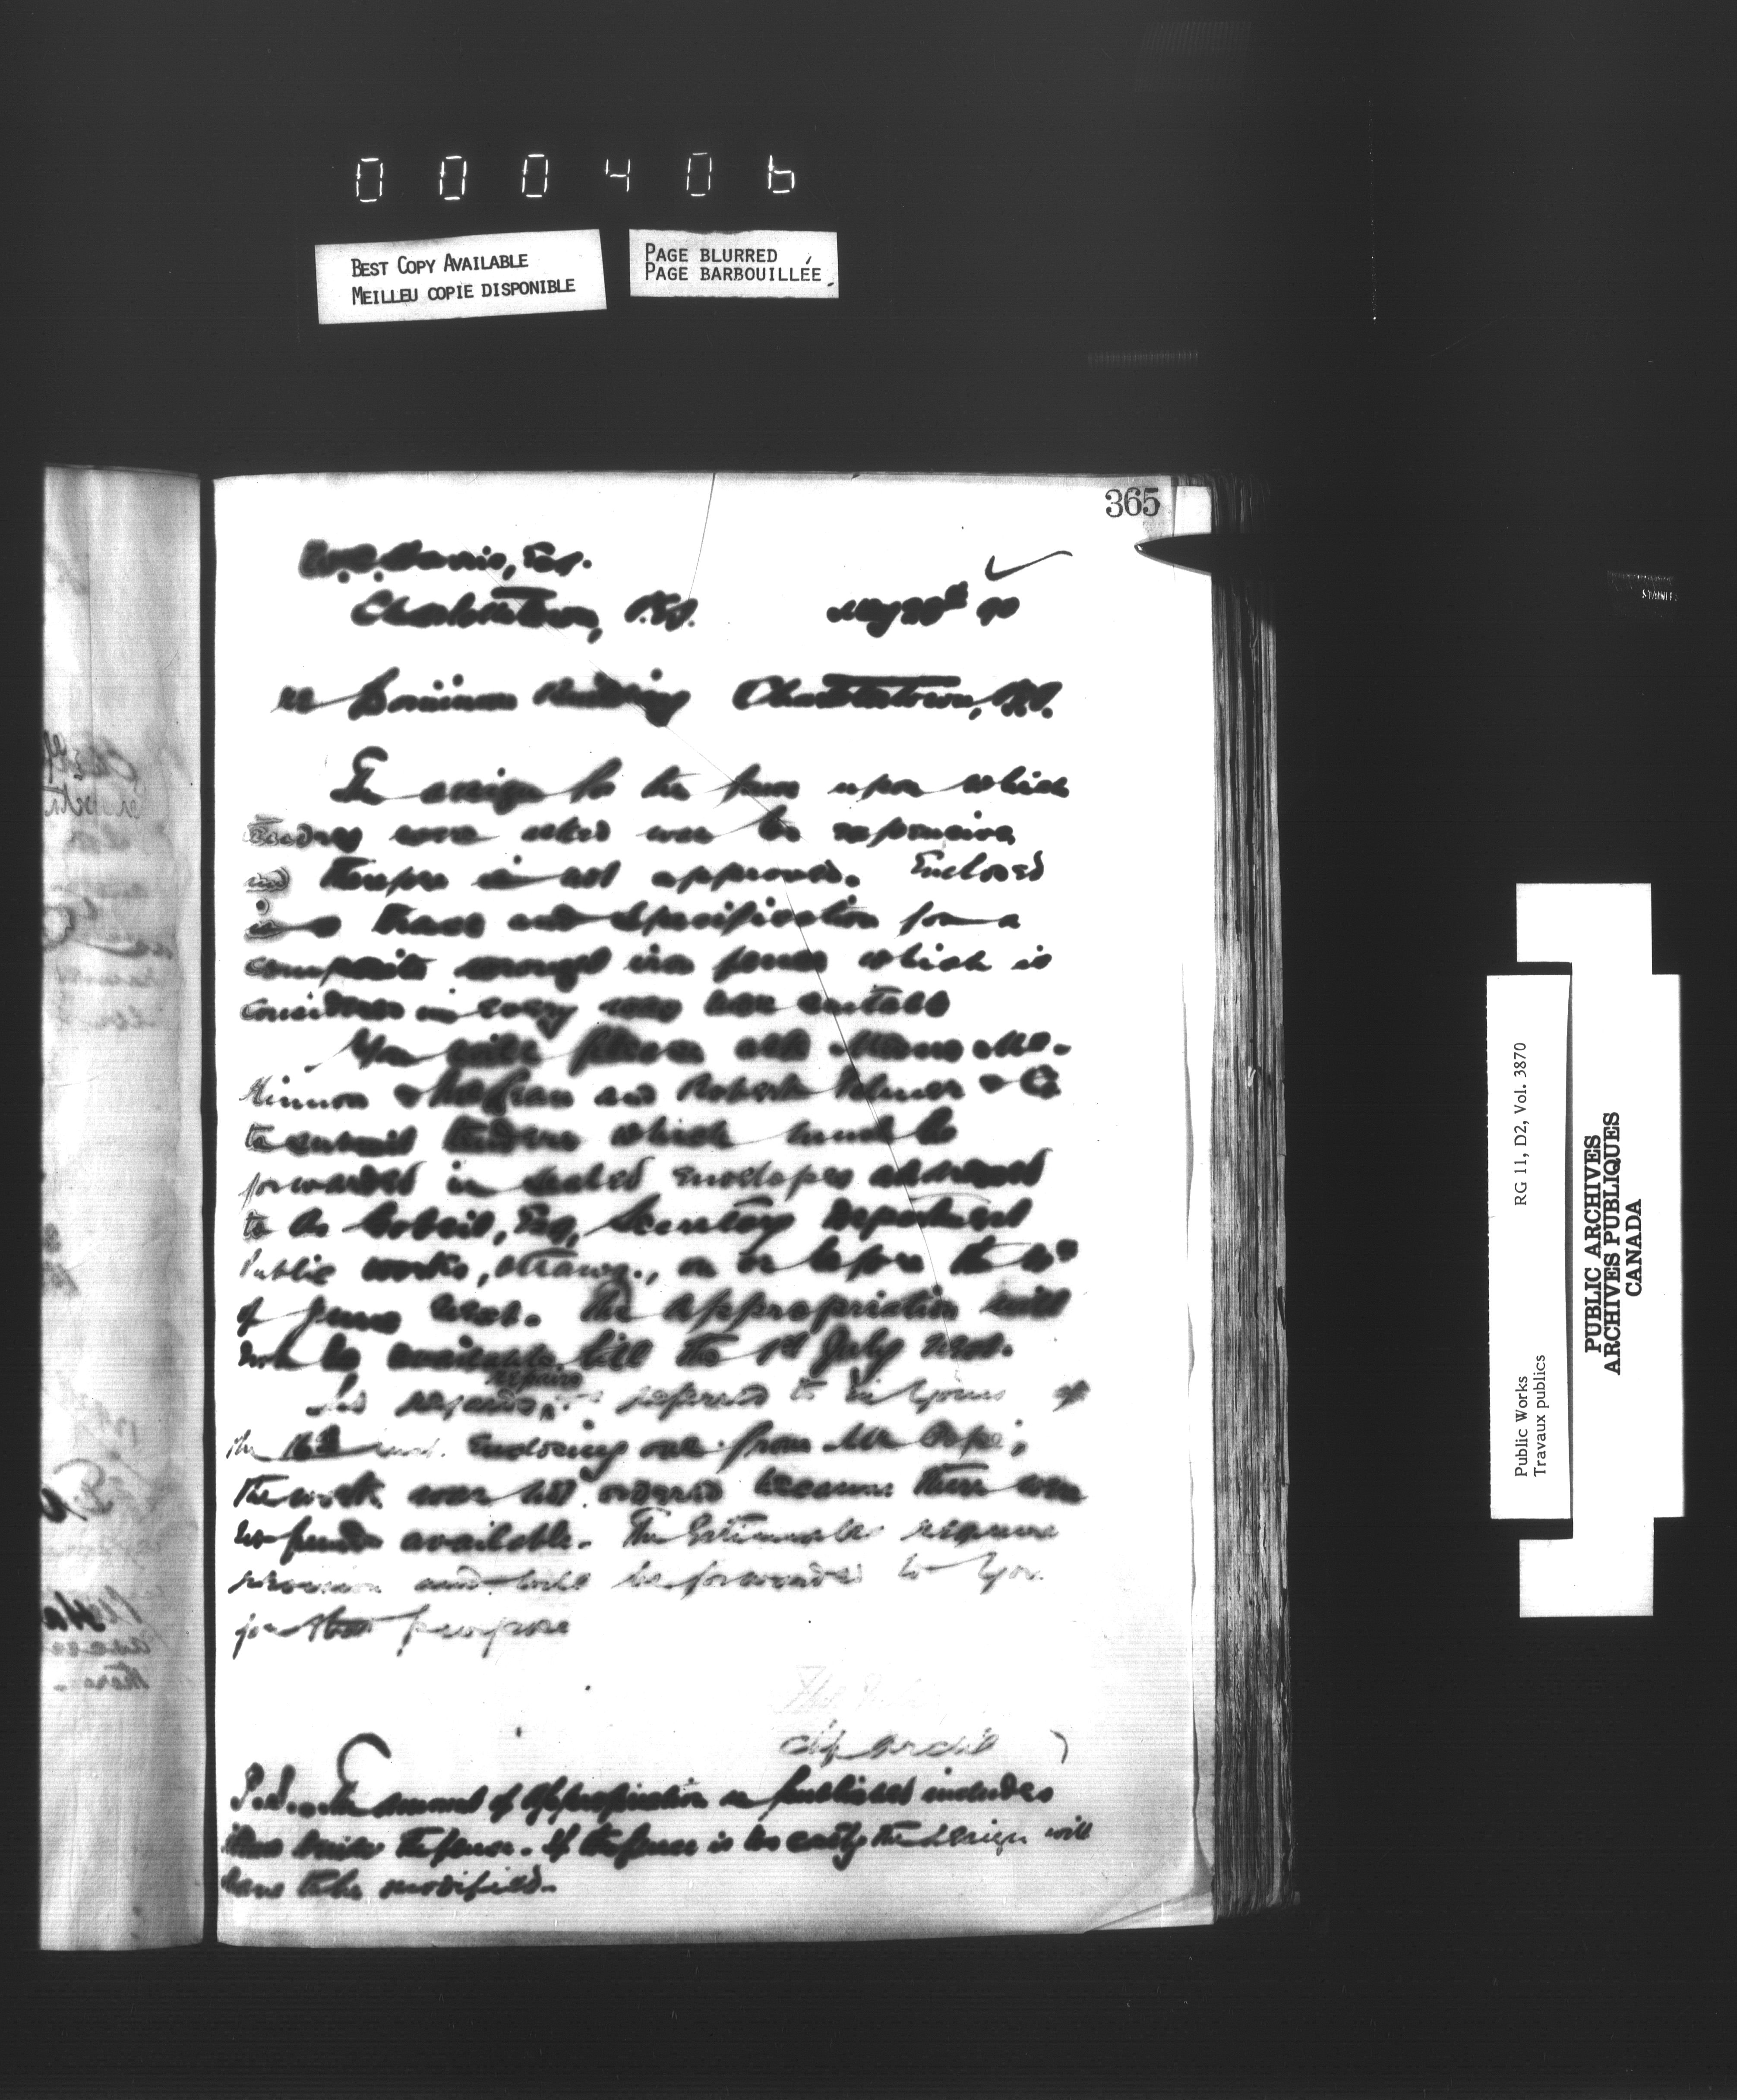 000406
BEST COPY AVAILABLE
MEILLEU COPIE DISPONIBLE
PAGE BLURRED
PAGE BARBOUILLÉE
365
Esq.
Charlottetown, P.E.I. May 90
re Dominion Building Charlottetown, P.E.I.
The design for the fence upon which
tenders were asked was too expensive
and is not approved. Enclosed
is a trace and specification for a
composite wrought iron fence which is
considered in every way suitable
You will please ask Messrs Mc-
Kinnon & McLean and Robert Palmer & Co
to submit tenders which must be
forwarded in sealed envelopes addressed
to A. Gobeil, Esq, Secretary Department
Public Works, Ottawa, on or before the
of June next. The appropriation will
not be available till the 1st July next.
As regards repairs referred to in yours of
the inst. enclosing one from Mr Pope;
the work was not ordered because there were
no funds available. The Estimate requires
revision and will be forwarded to you
for that purpose
P.S. The amount of appropriation as published includes
items beside the fence. If the fence is too costly the design will
have to be modified.
Public Works
Travaux publics
RG 11, D2, Vol. 3870
PUBLIC ARCHIVES
ARCHIVES PUBLIQUES
CANADA